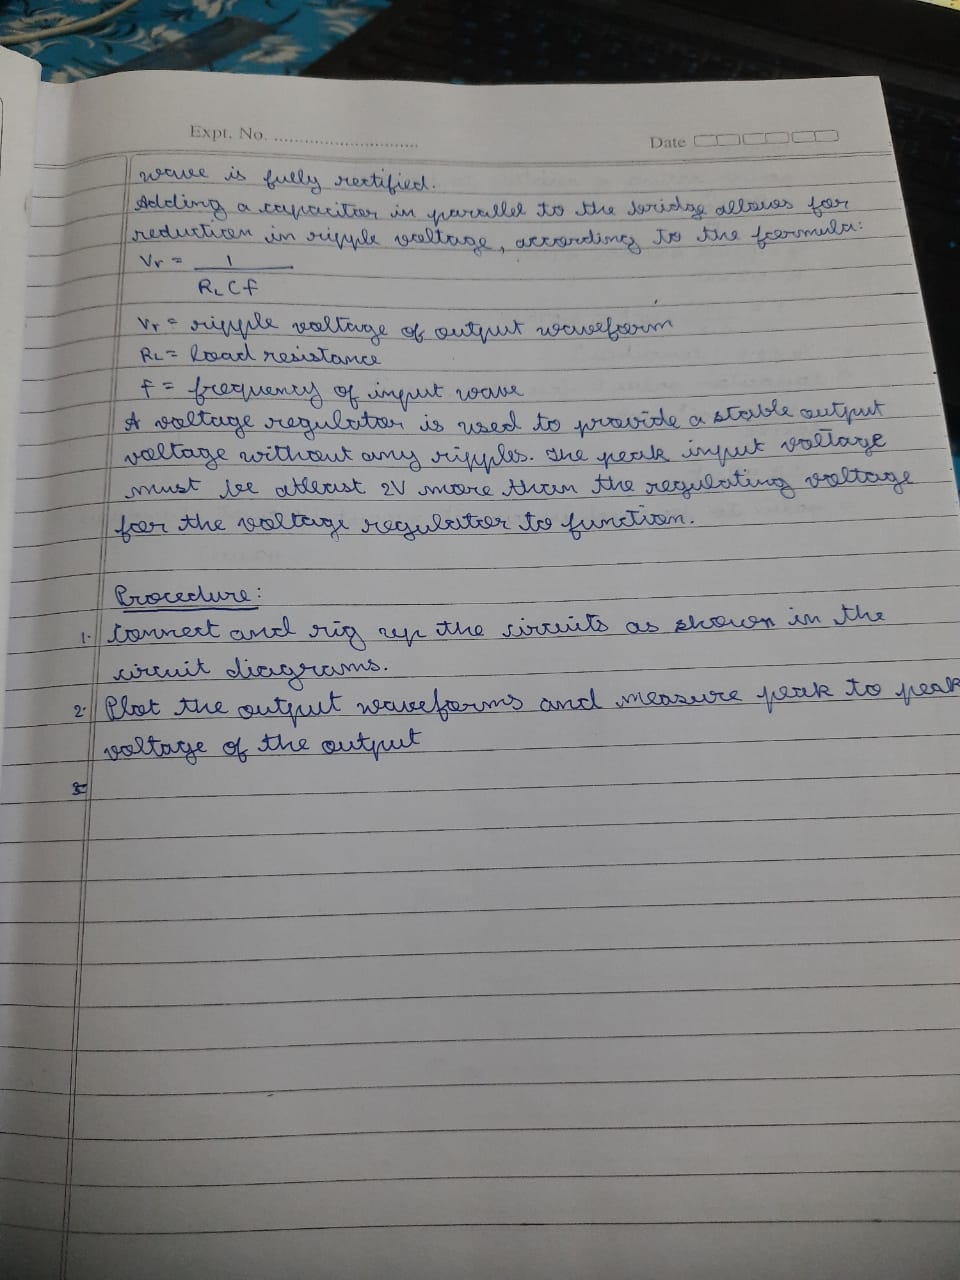 Expt. No. ..............................
Date
wave is fully rectified.
Adding a capacitor in parallel to the bridge allows for
reduction in ripple voltage, according to the formula:
Vr = 1
RL C f
Vr = ripple voltage of output waveform
RL = load resistance
f = frequency of input wave
A voltage regulator is used to provide a stable output
voltage without any ripples. The peak input voltage
must be atleast 2V more than the regulating voltage
for the voltage regulator to function.
Procedure:
1. Connect and rig up the circuits as shown in the
circuit diagrams.
2. Plot the output waveforms and measure peak to peak
voltage of the output
3